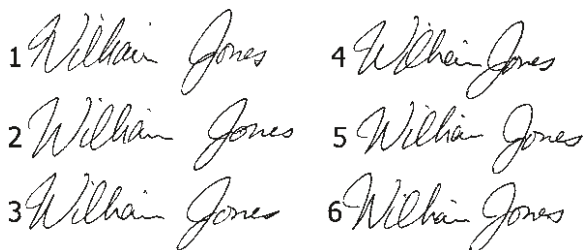 1 William Jones
4 William Jones
2 William Jones
5 William Jones
3 William Jones
6 William Jones